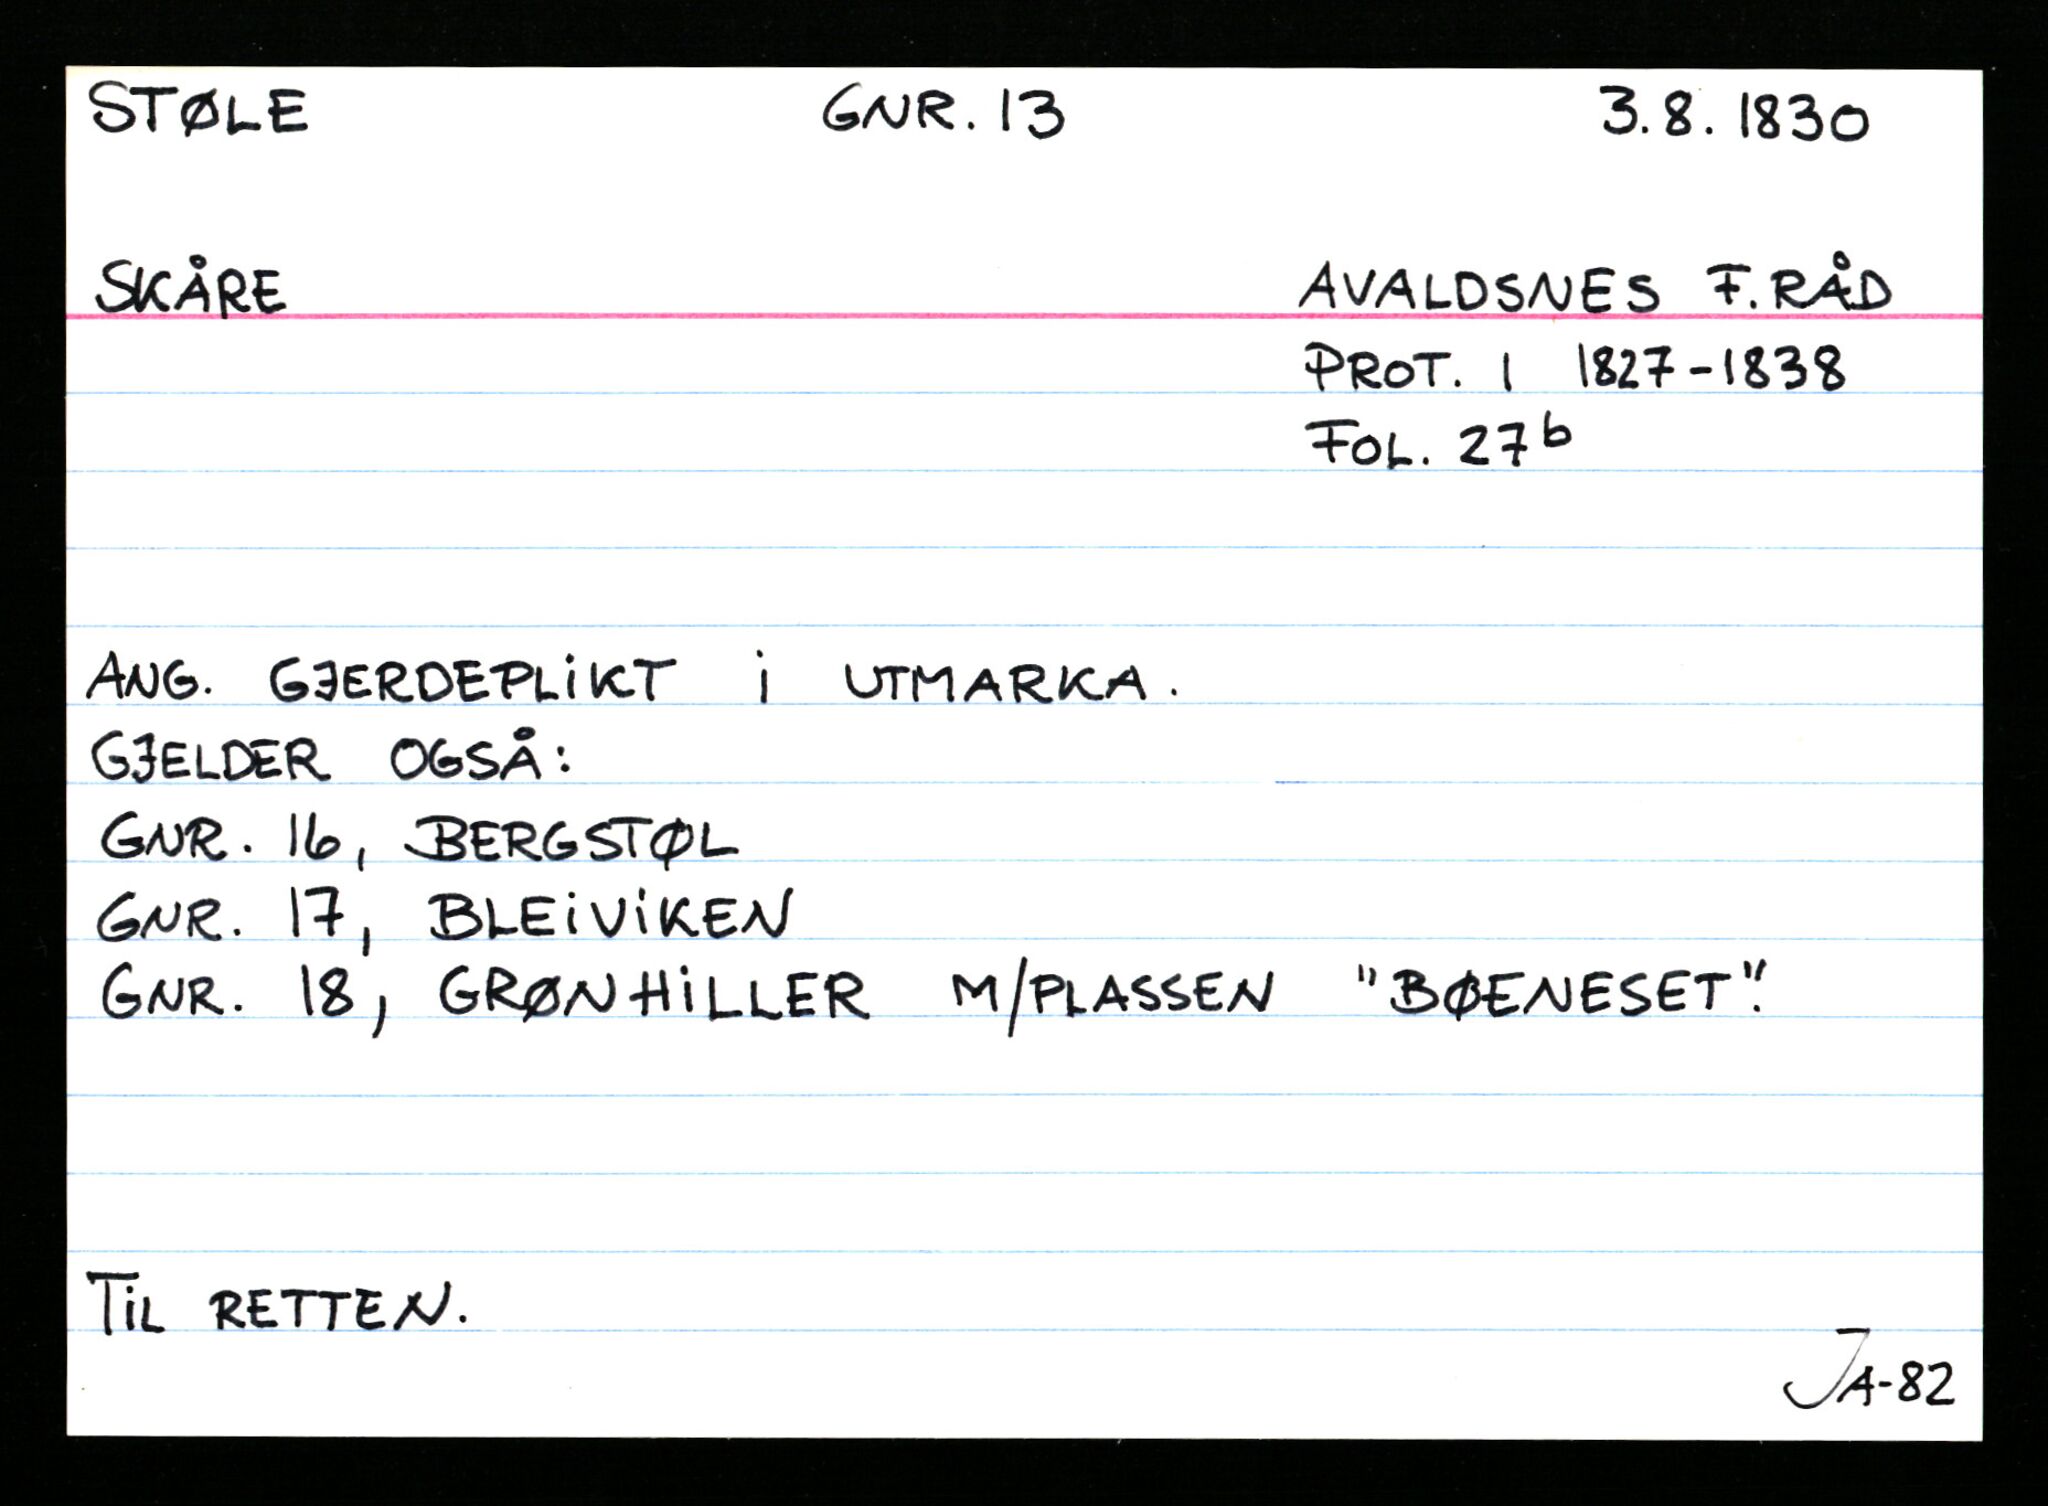 STØLE GNR. 13 3.8. 1830
SKÅRE AVALDSNES F.RÅD
PROT. 1 1827-1838
FOL. 27b
ANG. GJERDEPLiKT i UTMARKA.
GJELDER OGSÅ:
GNR. 16, BERGSTØL
GNR. 17, BLEiViKEN
GNR. 18, GRØNHiLLER M/PLASSEN "BØENESET".
TiL RETTEN.
JA-82